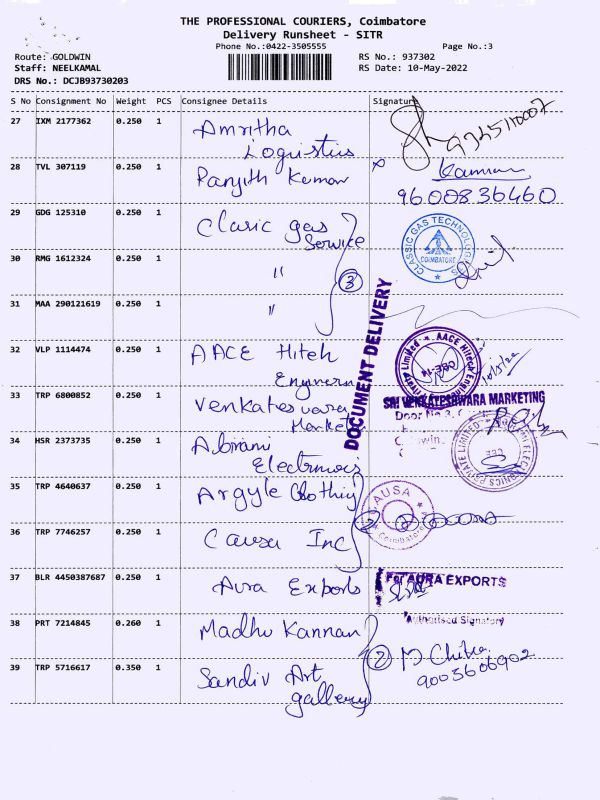 THE PROFESSIONAL COURIERS, Coimbatore
Delivery Runsheet - SITR
Phone No.:0422-3505555 Page No.:3
Route: GOLDWIN RS No.: 937302
Staff: NEELKAMAL RS Date: 10-May-2022
DRS No.: DCJB93730203
S No Consignment No Weight PCS Consignee Details Signature
27 IXM 2177362 0.250 1 Amritha
Logistics
28 TVL 307119 0.250 1 Ranjith Kumar Kannan
9600836460
29 GDG 125310 0.250 1 Clasic gas
Service
CLASSIC GAS TECHNOLOGIES
COIMBATORE
30 RMG 1612324 0.250 1 "
3
31 MAA 290121619 0.250 1 "
DOCUMENT DELIVERY
32 VLP 1114474 0.250 1 AACE Hiteh
33 TRP 6800852 0.250 1 Venkateswara
Market
SRI VENKATESHWARA MARKETING
Door No 3,
34 HSR 2373735 0.250 1 Abirami
Electronics
35 TRP 4640637 0.250 1 Argyle Clothing
CAUSA
Coimbatore
36 TRP 7746257 0.250 1 Causa Inc
2
37 BLR 4450387687 0.250 1 Aura Exports
For AURA EXPORTS
Authorised Signatory
38 PRT 7214845 0.260 1 Madhu Kannan
2 M Chitra
9005606902
39 TRP 5716617 0.350 1 Sandiv Art
gallery